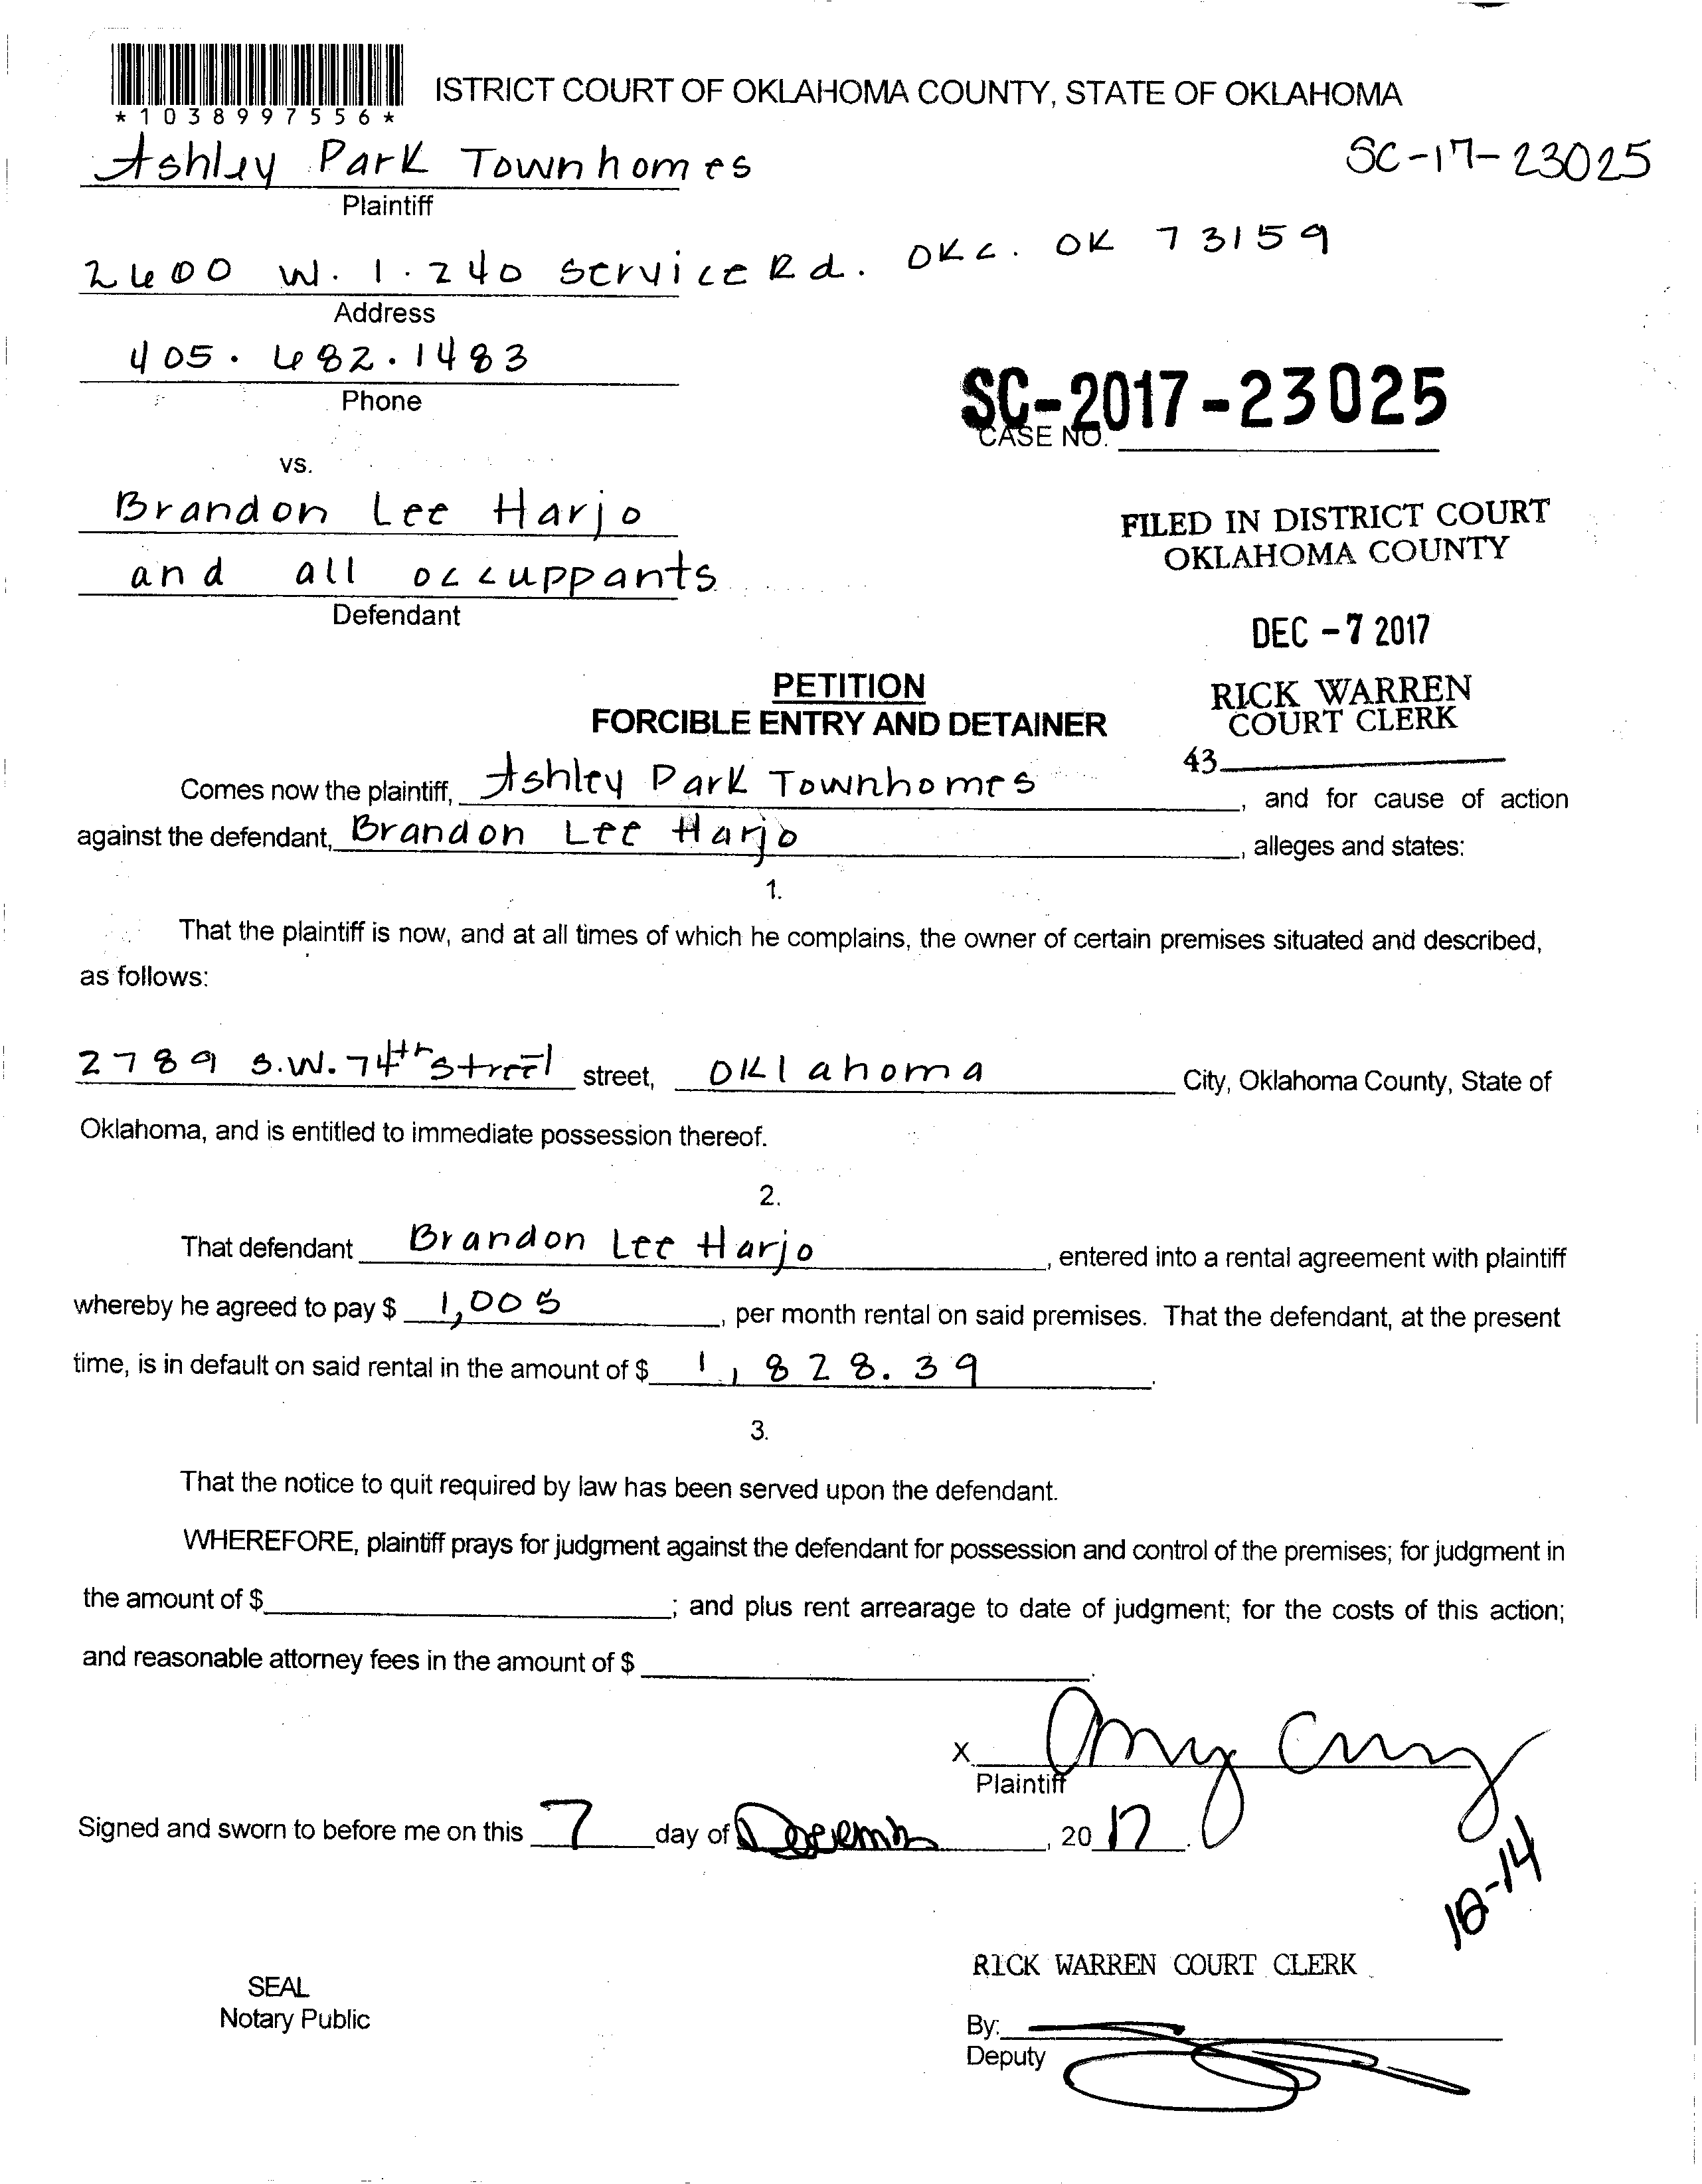 ISTRICT COURT OF OKLAHOMA COUNTY, STATE OF OKLAHOMA
*1038997556*
Ashley Park Townhomes
SC-17-23025
Plaintiff
2600 W. I.240 Service Rd. OKC. OK 73159
Address
405.682.1483
Phone
SC-2017-23025
CASE NO.
vs.
Brandon Lee Harjo
and all occuppants
Defendant
FILED IN DISTRICT COURT
OKLAHOMA COUNTY
DEC -7 2017
RICK WARREN
COURT CLERK
43
PETITION
FORCIBLE ENTRY AND DETAINER
Comes now the plaintiff, Ashley Park Townhomes, and for cause of action
against the defendant, Brandon Lee Harjo, alleges and states:
1.
That the plaintiff is now, and at all times of which he complains, the owner of certain premises situated and described,
as follows:
2789 S.W. 74th Street street, Oklahoma City, Oklahoma County, State of
Oklahoma, and is entitled to immediate possession thereof.
2.
That defendant Brandon Lee Harjo, entered into a rental agreement with plaintiff
whereby he agreed to pay $ 1,005, per month rental on said premises. That the defendant, at the present
time, is in default on said rental in the amount of $ 1,828.39.
3.
That the notice to quit required by law has been served upon the defendant.
WHEREFORE, plaintiff prays for judgment against the defendant for possession and control of the premises; for judgment in
the amount of $; and plus rent arrearage to date of judgment; for the costs of this action;
and reasonable attorney fees in the amount of $.
X Amy
Plaintiff
Signed and sworn to before me on this 7 day of Decemb, 2017.
12-14
RICK WARREN COURT CLERK
SEAL
Notary Public
By:
Deputy